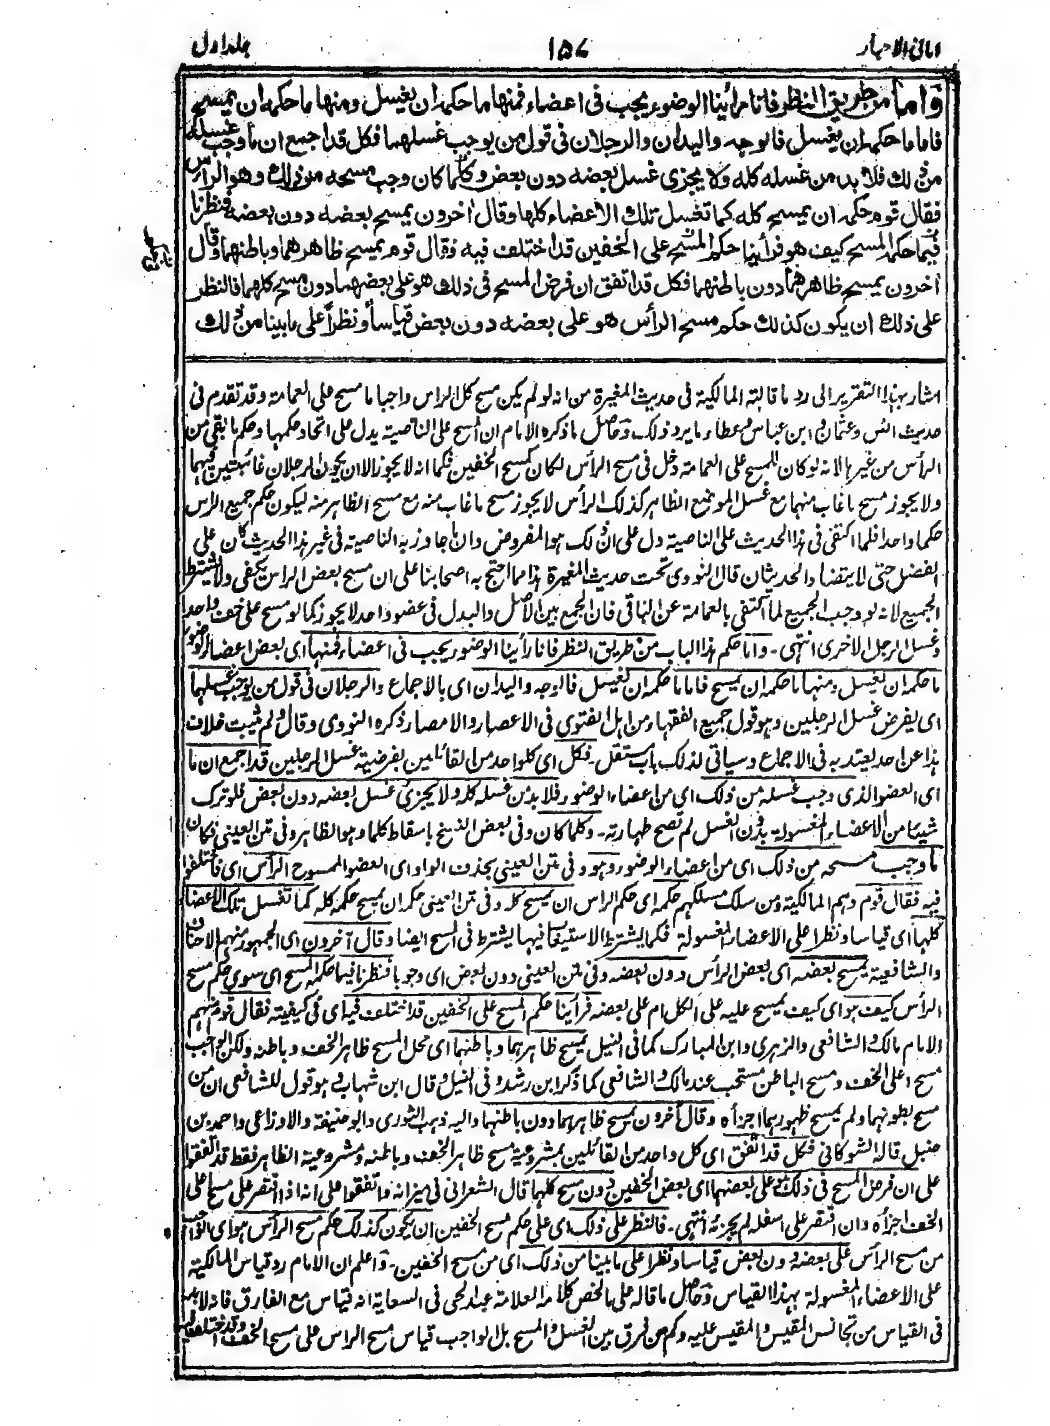 امانی الاحبار ۱۵۷ جلد اول
وَاما من طريق النظر فانا رأينا الوضوء يجب فى اعضاء فمنها ما حكمه ان يغسل ومنها ما حكمه ان يمسح
فاما ما حكمه ان يغسل فالوجه واليدان والرجلان فى قول من يوجب غسلهما فكل قد اجمع ان ما وجب غسله
من ذلك فلا بد من غسله كله ولا يجزى غسل بعضه دون بعض وكلما كان وجب مسحه من ذلك وهو الرأس
فقال قوم حكمه ان يمسح كله كما تغسل تلك الاعضاء كلها وقال اخرون يمسح بعضه دون بعضه فنظرنا
فيما حكمه المسح كيف هو فرأينا حكم المسح على الخفين قد اختلف فيه فقال قوم يمسح ظاهرهما وباطنهما وقال
اخرون يمسح ظاهرهما دون باطنهما فكل قد اتفق ان فرض المسح فى ذلك هو على بعضهما دون مسح كلهما فالنظر
على ذلك ان يكون كذلك حكم مسح الرأس هو على بعضه دون بعض قياسا ونظرا على ما بينا من ذلك
اشار بهذا التقرير الى رد ما قالته المالكية فى حديث المغيرة من انه لو لم يكن مسح كل الراس واجبا ما مسح على العمامة وقد تقدم فى
حديث انس وعثمان وابن عباس وعطاء ما يرد ذلك وحاصل ما ذكره الامام ان المسح على الناصية يدل على اتحاد حكمها وحكم ما بقى من
الرأس من غيرها لانه لو كان للمسح على العمامة دخل فى مسح الرأس لكان كمسح الخفين فكما انه لا يجوز الا ان يكون الرجلان غائبتين فيهما
ولا يجوز مسح ما غاب منهما مع غسل الموضع الظاهر كذلك الرأس لا يجوز مسح ما غاب منه مع مسح الظاهر منه ليكون حكم جميع الراس
حكما واحدا فلما اكتفى فى هذا الحديث على الناصية دل على ان ذلك هو المفروض وان ما جاوز به الناصية فى غير هذا الحديث كان على
الفضل حتى لا يتضاد الحديثان قال النووى تحت حديث المغيرة هذا مما احتج به اصحابنا على ان مسح بعض الراس يكفى ولا يشترط
الجميع لانه لو وجب الجميع لما اكتفى بالعمامة عن الباقى فان الجمع بين الاصل والبدل فى عضو واحد لا يجوز كما لو مسح على خف واحد
وغسل الرجل الاخرى انتهى۔ واما حكم هذا الباب من طريق النظر فانا رأينا الوضوء يجب فى اعضاء فمنها اى بعض اعضاء الوضوء
ما حكمه ان يغسل ومنها ما حكمه ان يمسح فاما ما حكمه ان يغسل فالوجه واليدان اى بالاجماع والرجلان فى قول من يوجب غسلهما
اى يفرض غسل الرجلين وهو قول جميع الفقهاء من اهل الفتوى فى الاعصار والامصار ذكره النووى وقال ولم يثبت خلاف
هذا عن احد يعتد به فى الاجماع وسياتى لذلك باب مستقل۔ فكل اى كل واحد من القائلين بفرضية غسل الرجلين قد اجمع ان ما
اى العضو الذى وجب غسله من ذلك اى من اعضاء الوضوء فلا بد من غسله كله ولا يجزئ غسل بعضه دون بعض فلو ترك
شيئا من الاعضاء المغسولة بدون الغسل لم تصح طهارته۔ وكلما كان وفى بعض النسخ باسقاط كلما وهو الظاهر وفى متن العينى فكان
ما وجب مسحه من ذلك اى من اعضاء الوضوء وهو وفى متن العينى بحذف الواو اى العضو الممسوح الرأس اى فاختلفوا
فيه فقال قوم وهم المالكية ومن سلك مسلكهم حكمه اى حكم الراس ان يمسح كله وفى متن العينى حكمه ان يمسح حكمه كله كما تغسل تلك الاعضاء
كلها اى قياسا ونظرا على الاعضاء المغسولة فكما يشترط الاستيعاب فيها يشترط فى المسح ايضا وقال آخرون اى الجمهور منهم الاحناف
والشافعية يمسح بعضه اى بعض الرأس دون بعضه وفى متن العينى دون بعض اى وجوبا فنظرنا فيما حكمه المسح اى سوى حكم مسح
الرأس كيف هو اى كيف يمسح عليه على الكل ام على بعضه فرأينا حكم المسح على الخفين قد اختلف فيه اى فى كيفيته فقال قوم منهم
الامام مالك والشافعى والزهرى وابن المبارك كما فى النيل يمسح ظاهرهما وباطنهما اى محل المسح ظاهر الخف وباطنه ولكن الواجب
مسح اعلى الخف ومسح الباطن مستحب عند مالك والشافعى كما ذكر ابن رشد وفى النيل وقال ابن شهاب وهو قول للشافعى ان من
مسح بطونهما ولم يمسح ظهورهما اجزأه وقال آخرون يمسح ظاهرهما دون باطنهما واليه ذهب الثورى وابو حنيفة والاوزاعى واحمد بن
حنبل قاله الشوكانى فكل قد اتفق اى كل واحد من القائلين بمشروعية مسح ظاهر الخف وباطنه ومشروعية الظاهر فقط قد اتفقوا
على ان فرض المسح فى ذلك هو على بعضهما اى بعض الخفين دون مسح كلهما قال الشعرانى فى ميزانه واتفقوا على انه اذا اقتصر على مسح اعلى
الخف اجزأه وان اقتصر على اسفله لم يجزئه انتهى۔ فالنظر على ذلك اى على حكم مسح الخفين ان يكون كذلك حكم مسح الرأس هو اى الواجب
من مسح الرأس على بعضه دون بعض قياسا ونظرا على ما بينا من ذلك اى من مسح الخفين۔ واعلم ان الامام رد قياس المالكية
على الاعضاء المغسولة بهذا القياس وحاصل ما قاله على ما لخص كلامه العلامة عبد الحى فى السعاية انه قياس مع الفارق فانه لا بد
فى القياس من تجانس المقيس والمقيس عليه وكم من فرق بين الغسل والمسح بل الواجب قياس مسح الراس على مسح الخف وقد اختلف فيه